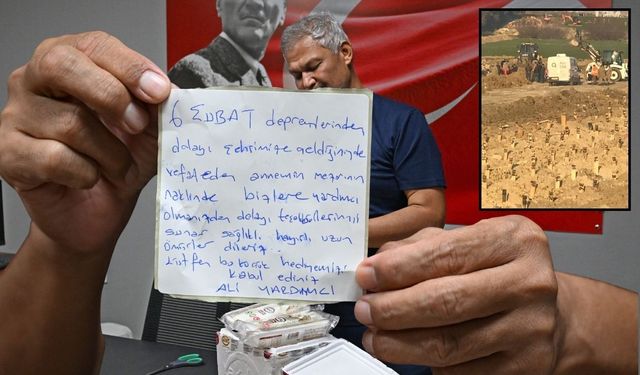 6 ŞUBAT depremlerinden
dolayı şehrimize geldiğinizde
vefat eden annemin mezarının
naklinde bizlere yardımcı
olmanızdan dolayı teşekkürlerimizi
sunar sağlıklı hayırlı uzun
ömürler dileriz.
Lütfen bu küçük hediyemizi
kabul ediniz
ALİ YARDAMCI